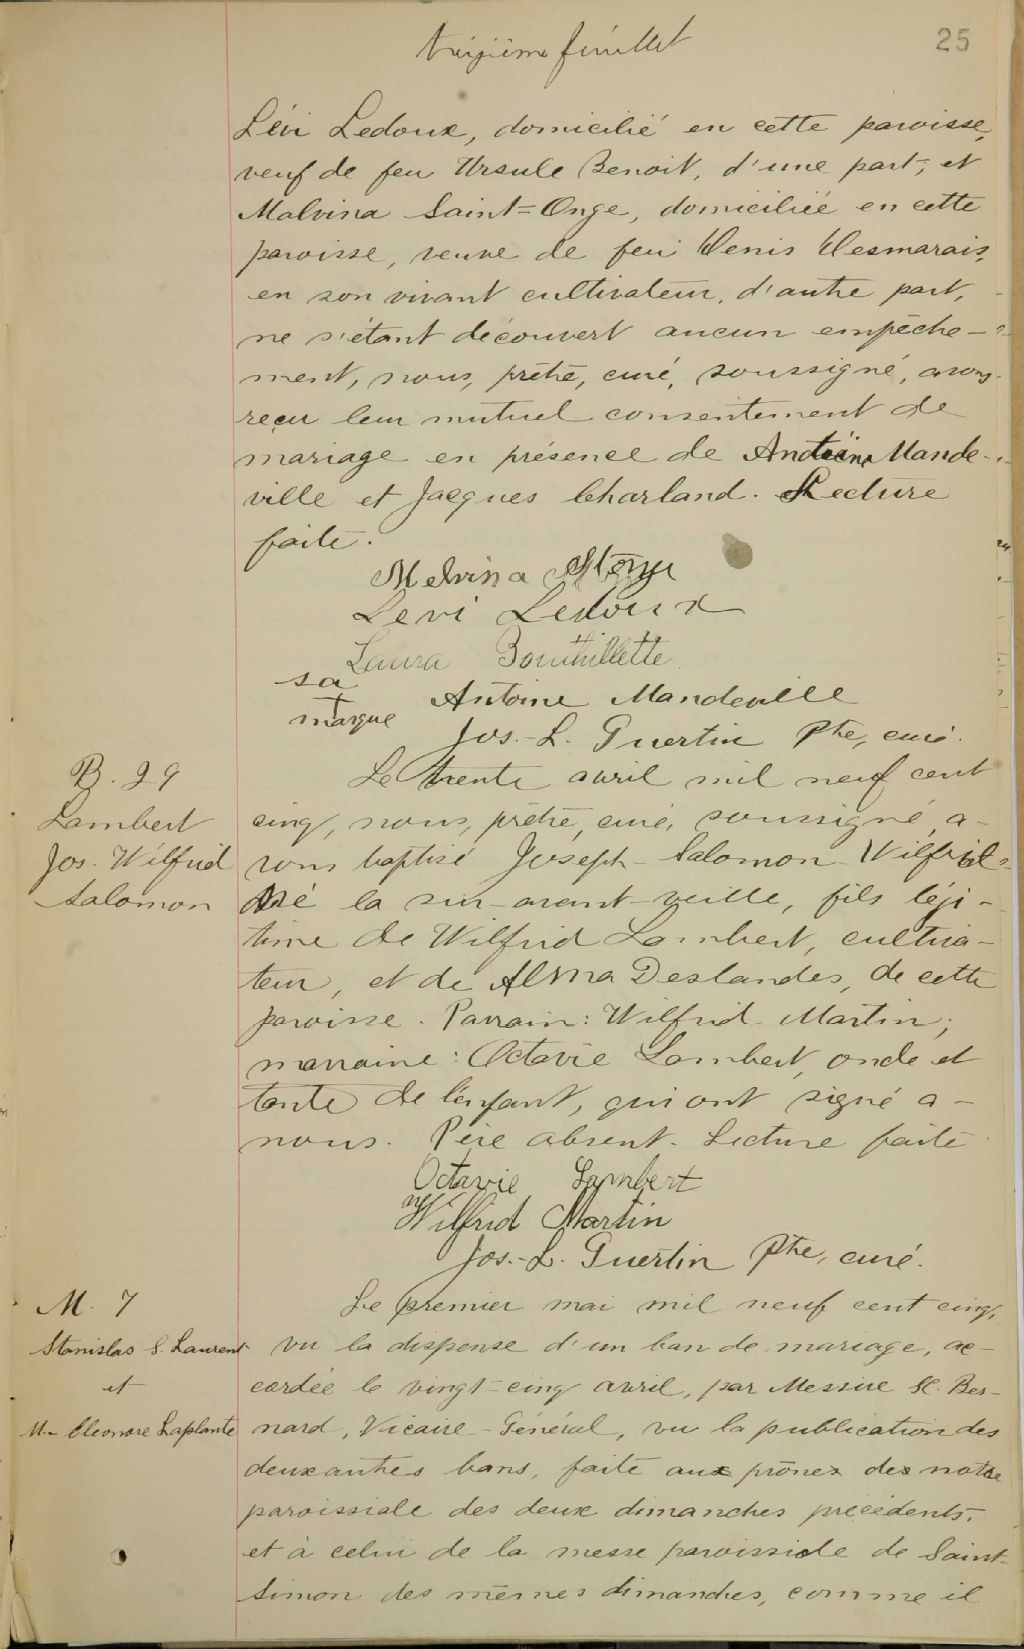 treizième feuillet
25
Lévi Ledoux, domicilié en cette paroisse,
veuf de feu Ursule Benoit, d'une part, et
Malvina Saint=Onge, domiciliée en cette
paroisse, veuve de feu Denis Desmarais,
en son vivant cultivateur, d'autre part,
ne s'étant découvert aucun empêche-
ment, nous, prêtre, curé, soussigné, avons
reçu leur mutuel consentement de
mariage en présence de Antoine Mande-
ville et Jacques Charland. Lecture
faite.
Melvina StOnge
Levi Ledoux
Laura Bouthillette
sa
+ Antoine Mandeville
marque
Jos.-L. Guertin Ptre, curé.
B. 29
Lambert
Jos. Wilfrid
Salomon
Le trente avril mil neuf cent
cinq, nous, prêtre, curé, soussigné, a-
vons baptisé Joseph-Salomon-Wilfrid
né la sur-avant-veille, fils légi-
time de Wilfrid Lambert, cultiva-
teur, et de Alma Deslandes, de cette
paroisse. Parrain: Wilfrid Martin;
marraine: Octavie Lambert, oncle et
tante de l'enfant, qui ont signé a-
nous. Père absent. Lecture faite
Octavie Lambert
Wilfrid Martin
Jos.-L. Guertin Ptre, curé.
M. 7
Stanislas S. Laurent
et
M.- Eleonore Laplante
Le premier mai mil neuf cent cinq,
vu la dispense d'un ban de mariage, ac-
cordée le vingt-cinq avril, par Messire C. Ber-
nard, Vicaire-Général, vu la publication des
deux autres bans, faite aux prônes de notre
paroissiale des deux dimanches précédents,
et à celui de la messe paroissiale de Saint-
Simon des mêmes dimanches, comme il